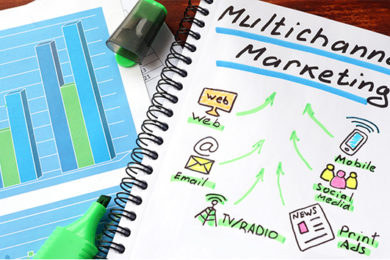 Multichann
Marketing
web
Web
@
Email
TV/RADIO
Mobile
Social
Media
NEWS
Print
Ads